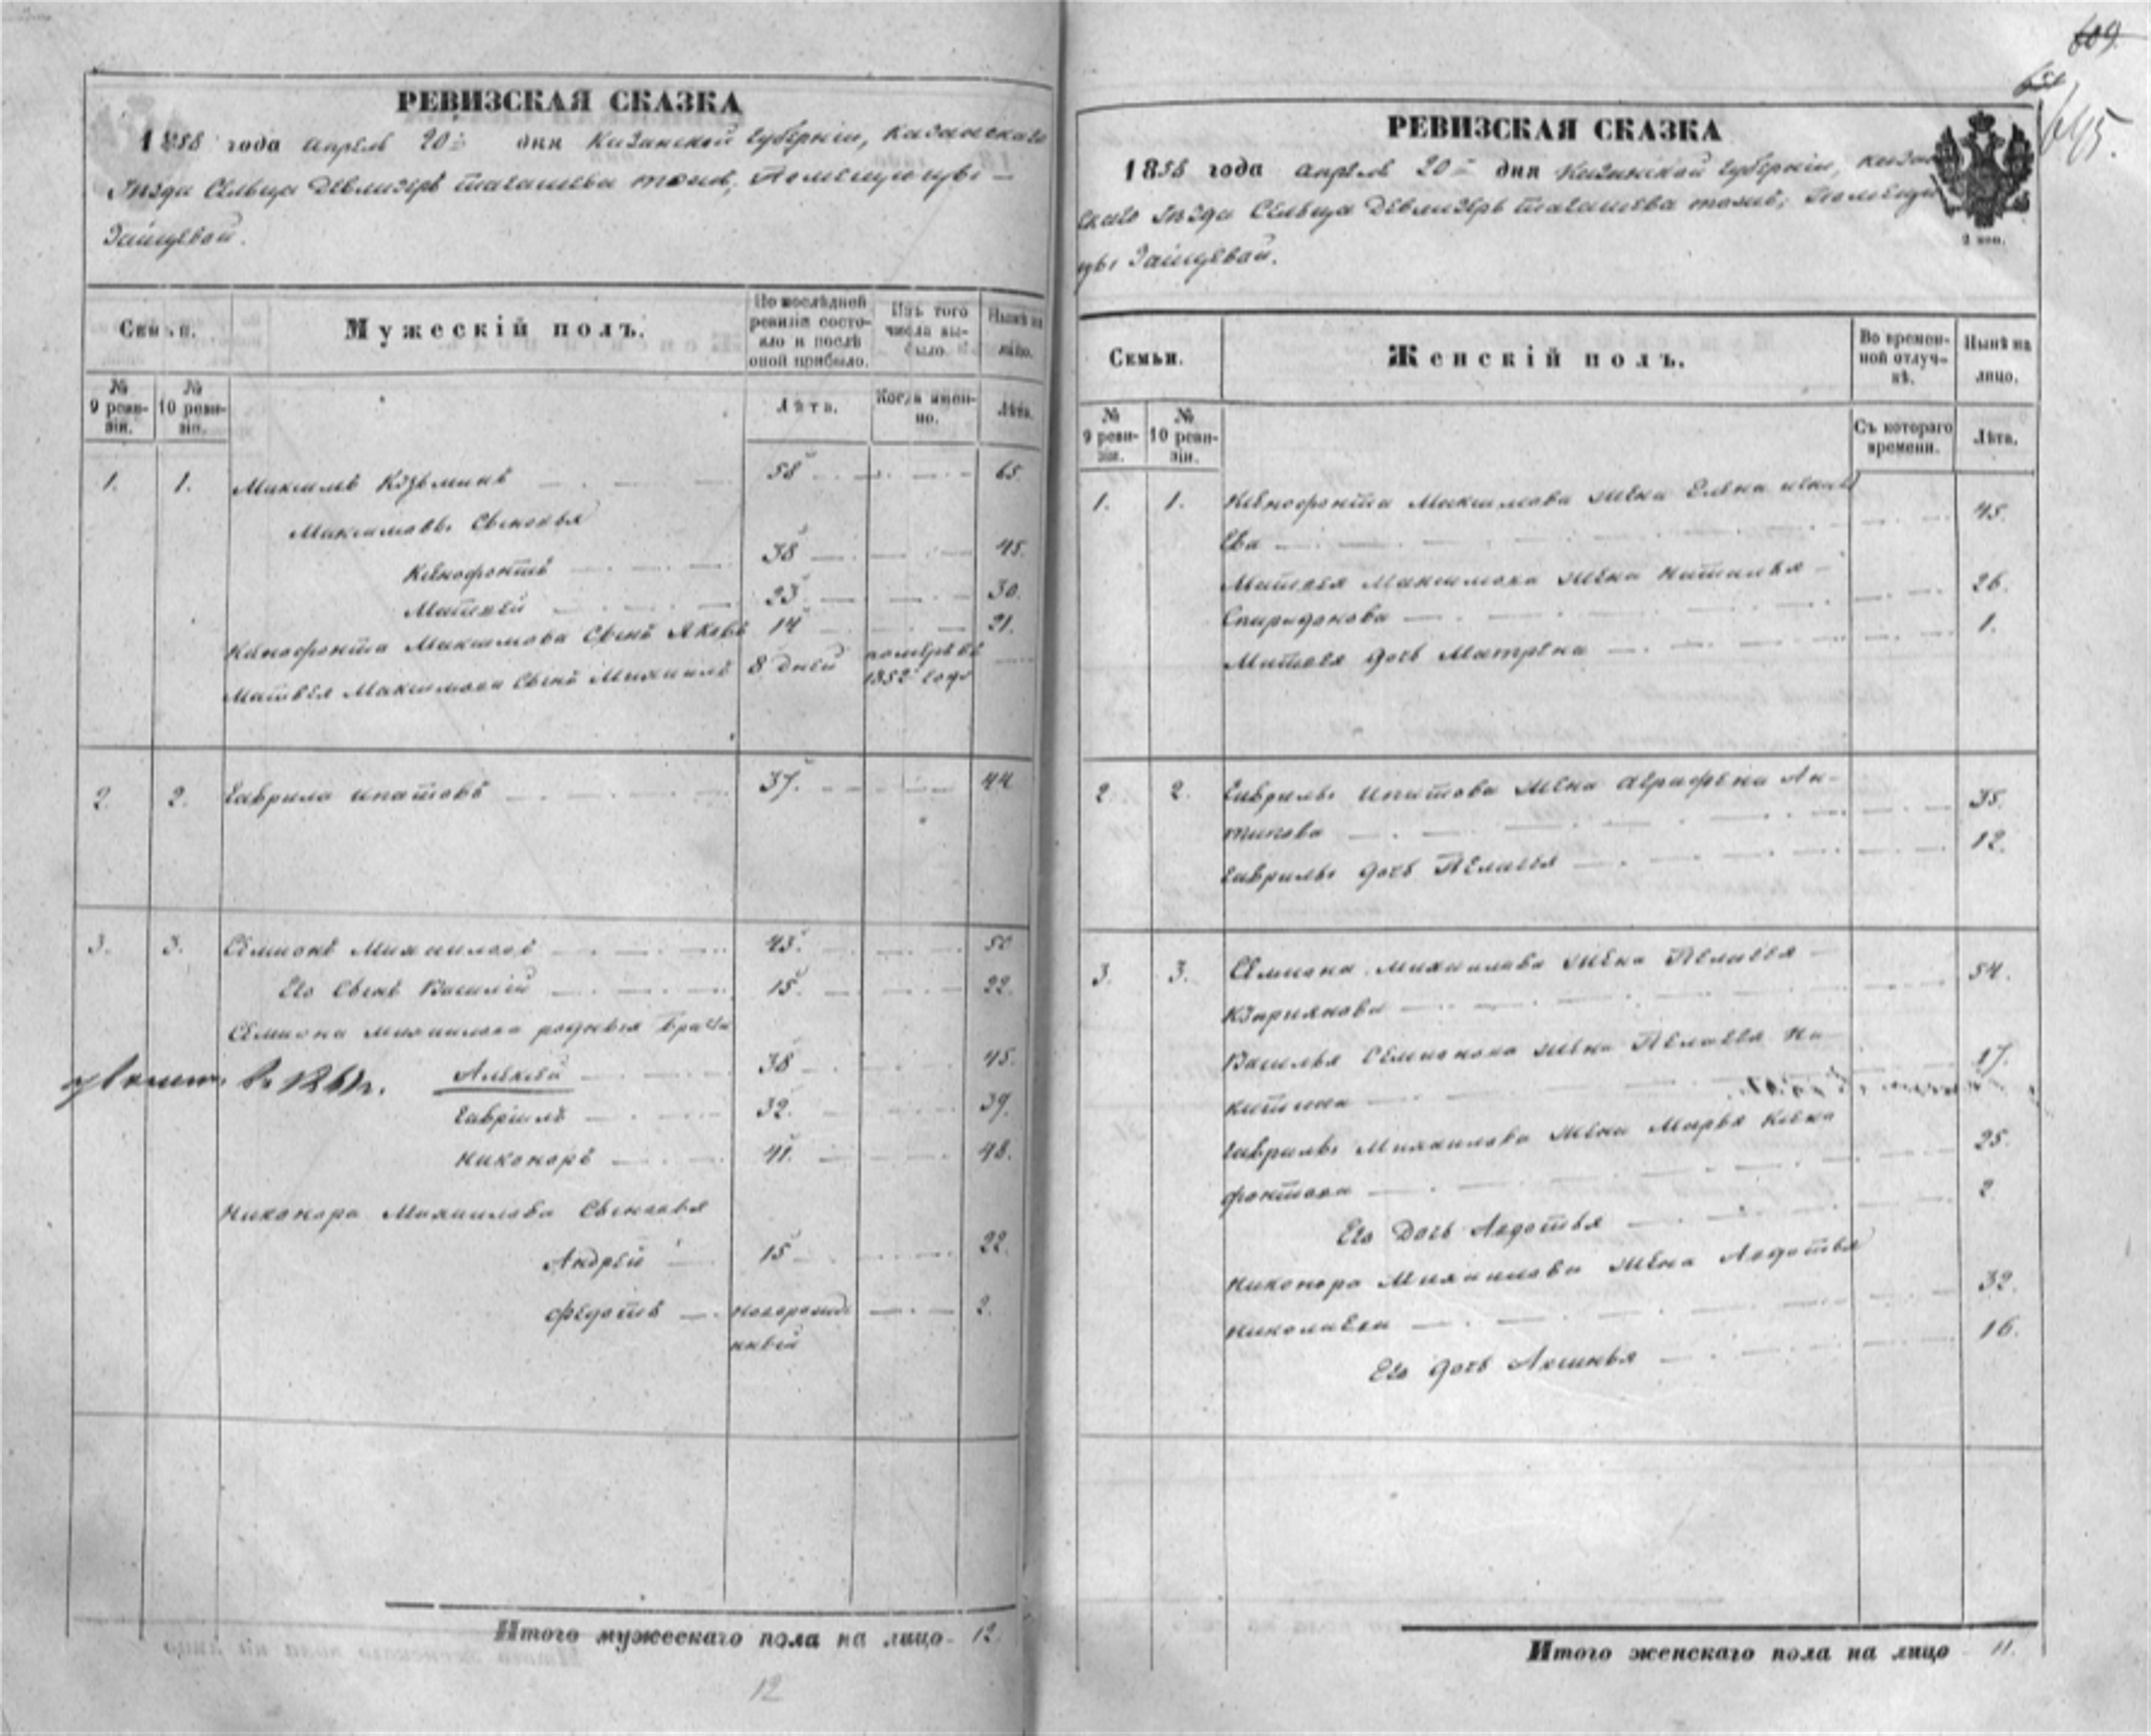 609
645.
РЕВИЗСКАЯ СКАЗКА
1858 года апреля 20го дня Казанской губерніи, Казанскаго
уѣзда Сельца Девлизерь тожъ, Помещицы
Зайцевой.
Семьи.
Мужескій полъ.
По послѣдней ревизіи состояло и послѣ оной прибыло.
Изъ того числа выбыло.
Нынѣ на лицо.
№ 9 ревизіи.
№ 10 ревизіи.
Лѣта.
Когда именно.
Лѣта.
1. 1. Максимъ Козьминъ 58 65.
Максимовы Сыновья
Ксенофонтъ 38 45.
Матвей 23 30.
Ксенофонта Максимова Сынъ Яковъ 14 21.
Матвея Максимова Сынъ Михаилъ 8 дней померъ въ
1852 годе
2. 2. Гаврила Ипатовъ 37. 44
3. 3. Семионъ Михаиловъ 43. 50
Его Сынъ Василій 15. 22.
Семиона Михаилова родныя братья
Алексей 38 45.
Гаврилъ 32. 39.
Никоноръ 41. 48.
Никонора Михаилова Сыновья
Андрей 15 22.
Федотъ новорожде 2.
нный
Итого мужескаго пола на лицо 12.
12
РЕВИЗСКАЯ СКАЗКА
1858 года апреля 20го дня Казанской губерніи, Казан
скаго уѣзда Сельца Девлизерь тожъ, Помещи
цы Зайцевой.
2 коп.
Семьи.
Женскій полъ.
Во временной отлучкѣ.
Нынѣ на лицо.
№ 9 ревизіи.
№ 10 ревизіи.
Съ котораго времени.
Лѣта.
1. 1. Ксенофонта Максимова жена Елена
ева 45.
Матвея Максимова жена Наталья
Спиридонова 26.
Матвея дочь Матрена 1.
2 2. Гаврилы Ипатова жена Аграфена Ан-
типова 35.
Гаврилы дочь Пелагея 12.
3. 3. Семиона Михаилова жена Пелагея
Куприянова 54.
Василья Семионова жена Пелагея Ни
китина 17.
Гаврилы Михаилова жена Марья Ксено
фонтова 25.
Его Дочь Авдотья 2
Никонора Михаилова жена Авдотья
Николаева 32.
Его дочь Аксинья 16.
Итого женскаго пола на лицо 11.